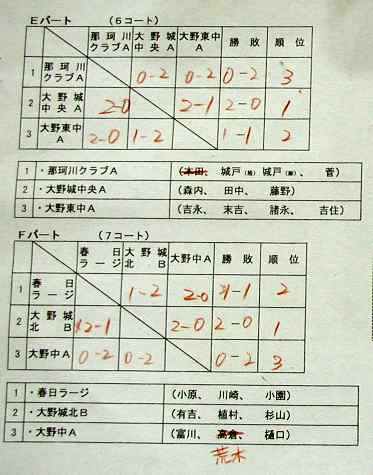 Eパート （6コート）
那珂川クラブA 大野城中央A 大野東中A 勝敗 順位
1 那珂川クラブA 0-2 0-2 0-2 3
2 大野城中央A 2-0 2-1 2-0 1
3 大野東中A 2-0 1-2 1-1 2
1 ・那珂川クラブA （本田、 城戸（裕） 城戸 、 菅）
2 ・大野城中央A （森内、 田中、 藤野）
3 ・大野東中A （吉永、 末吉、 諸永、 吉住）
Fパート （7コート）
春日ラージ 大野城北B 大野中A 勝敗 順位
1 春日ラージ 1-2 2-0 1-1 2
2 大野城北B 2-1 2-0 2-0 1
3 大野中A 0-2 0-2 0-2 3
1 ・春日ラージ （小原、 川崎、 小園）
2 ・大野城北B （有吉、 植村、 杉山）
3 ・大野中A （富川、 高倉、 樋口）
荒木